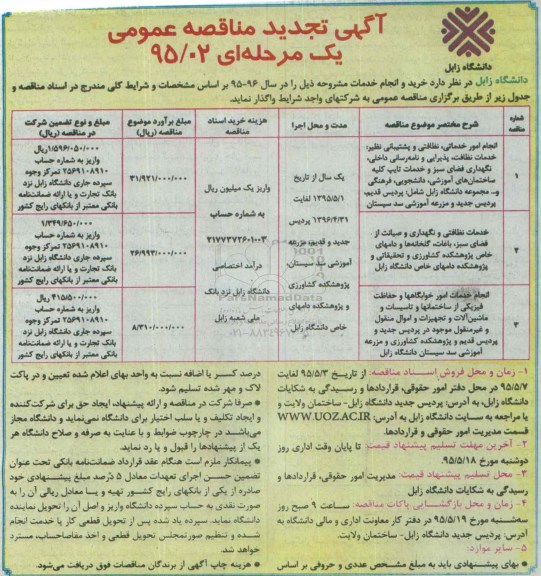 آگهی تجدید مناقصه عمومی
یک مرحله‌ای ۹۵/۰۲
دانشگاه زابل
دانشگاه زابل در نظر دارد خرید و انجام خدمات مشروحه ذیل را در سال ۹۶-۹۵ بر اساس مشخصات و شرایط کلی مندرج در اسناد مناقصه و
جدول زیر از طریق برگزاری مناقصه عمومی به شرکتهای واجد شرایط واگذار نماید.
شماره مناقصه
شرح مختصر موضوع مناقصه
مدت و محل اجرا
هزینه خرید اسناد مناقصه
مبلغ برآورد موضوع مناقصه (ریال)
مبلغ و نوع تضمین شرکت در مناقصه (ریال)
۱
انجام امور خدماتی، نظافتی و پشتیبانی نظیر:
خدمات نظافت، پذیرایی و نامه‌رسانی داخلی،
نگهداری فضای سبز و خدمات تایپ کلیه
ساختمان‌های آموزشی، دانشجویی، فرهنگی
و.. مجموعه دانشگاه زابل شامل: پردیس قدیم،
پردیس جدید و مزرعه آموزشی سد سیستان
یک سال از تاریخ
۱۳۹۵/۵/۱ لغایت
۱۳۹۶/۴/۳۱ پردیس
جدید و قدیم، مزرعه
آموزشی سد سیستان،
پژوهشکده کشاورزی
و پژوهشکده دامهای
خاص دانشگاه زابل
واریز یک میلیون ریال
به شماره حساب
۲۱۷۷۳۷۲۶۰۱۰۰۳
درآمد اختصاصی
دانشگاه زابل نزد بانک
ملی شعبه زابل
۳۱/۹۲۱/۰۰۰/۰۰۰
۱/۵۹۶/۰۵۰/۰۰۰ریال
واریز به شماره حساب
۲۵۶۹۱۰۸۹۱۰ تمرکز وجوه
سپرده جاری دانشگاه زابل نزد
بانک تجارت و یا ارائه ضمانت‌نامه
بانکی معتبر از بانکهای رایج کشور
۲
خدمات نظافتی و نگهداری و صیانت از
فضای سبز، باغات، گلخانه‌ها و دامهای
خاص پژوهشکده کشاورزی و تحقیقاتی و
پژوهشکده دامهای خاص دانشگاه زابل
۲۶/۹۹۳/۰۰۰/۰۰۰
۱/۳۴۹/۶۵۰/۰۰۰
واریز به شماره حساب
۲۵۶۹۱۰۸۹۱۰ تمرکز وجوه
سپرده جاری دانشگاه زابل نزد
بانک تجارت و یا ارائه ضمانت‌نامه
بانکی معتبر از بانکهای رایج کشور
۳
انجام خدمات امور خوابگاهها و حفاظت
فیزیکی از ساختمانها و تاسیسات و
ماشین‌آلات و تجهیزات و اموال منقول
و غیرمنقول موجود در پردیس جدید و
پردیس قدیم و پژوهشکده کشاورزی و مزرعه
آموزشی سد سیستان دانشگاه زابل
۸/۳۱۰/۰۰۰/۰۰۰
۴۱۵/۵۰۰/۰۰۰ ریال
واریز به شماره حساب
۲۵۶۹۱۰۸۹۱۰ تمرکز وجوه
سپرده جاری دانشگاه زابل نزد
بانک تجارت و یا ارائه ضمانت‌نامه
بانکی معتبر از بانکهای رایج کشور
ParsNamadData
۱- زمان و محل فروش اسناد مناقصه: از تاریخ ۹۵/۵/۳ لغایت
۹۵/۵/۷ در محل دفتر امور حقوقی، قراردادها و رسیدگی به شکایات
دانشگاه زابل، به آدرس: پردیس جدید دانشگاه زابل- ساختمان ولایت و
یا مراجعه به سایت دانشگاه زابل به آدرس: WWW.UOZ.AC.IR
قسمت مدیریت امور حقوقی و قراردادها.
۲- آخرین مهلت تسلیم پیشنهاد قیمت: تا پایان وقت اداری روز
دوشنبه مورخ ۹۵/۵/۱۸.
۳- محل تسلیم پیشنهاد قیمت: مدیریت امور حقوقی، قراردادها و
رسیدگی به شکایات دانشگاه زابل
۴- زمان و محل بازگشایی پاکات مناقصه: ساعت ۹ صبح روز
سه‌شنبه مورخ ۹۵/۵/۱۹ در دفتر کار معاونت اداری و مالی دانشگاه به
آدرس: پردیس جدید دانشگاه زابل- ساختمان ولایت.
۵- سایر موارد:
* بهای پیشنهادی باید به مبلغ مشخص عددی و حروفی بر اساس
درصد کسر یا اضافه نسبت به واحد بهای اعلام شده تعیین و در پاکت
لاک و مهر شده تسلیم شود.
* صرفا شرکت در مناقصه و ارائه پیشنهاد، ایجاد حق برای شرکت‌کننده
و ایجاد تکلیف و یا سلب اختیار برای دانشگاه نمی‌نماید و دانشگاه مجاز
می‌باشد در چارچوب ضوابط و با عنایت به صرفه و صلاح دانشگاه هر
یک از پیشنهادها را قبول و یا رد نماید.
* پیمانکار ملزم است هنگام عقد قرارداد ضمانت‌نامه بانکی تحت عنوان
تضمین حسن اجرای تعهدات معادل ۵ درصد مبلغ پیشنهادی خود
صادره از یکی از بانکهای رایج کشور تهیه و یا معادل ریالی آن را به
صورت نقدی به حساب سپرده دانشگاه واریز و اصل آن را تحویل نماینده
دانشگاه نماید. سپرده یاد شده پس از تحویل قطعی کار یا خدمت انجام
شده و تنظیم صورتمجلس تحویل قطعی و اخذ مفاصاحساب، مسترد
خواهد شد.
* هزینه چاپ آگهی از برندگان مناقصات فوق دریافت می‌شود.